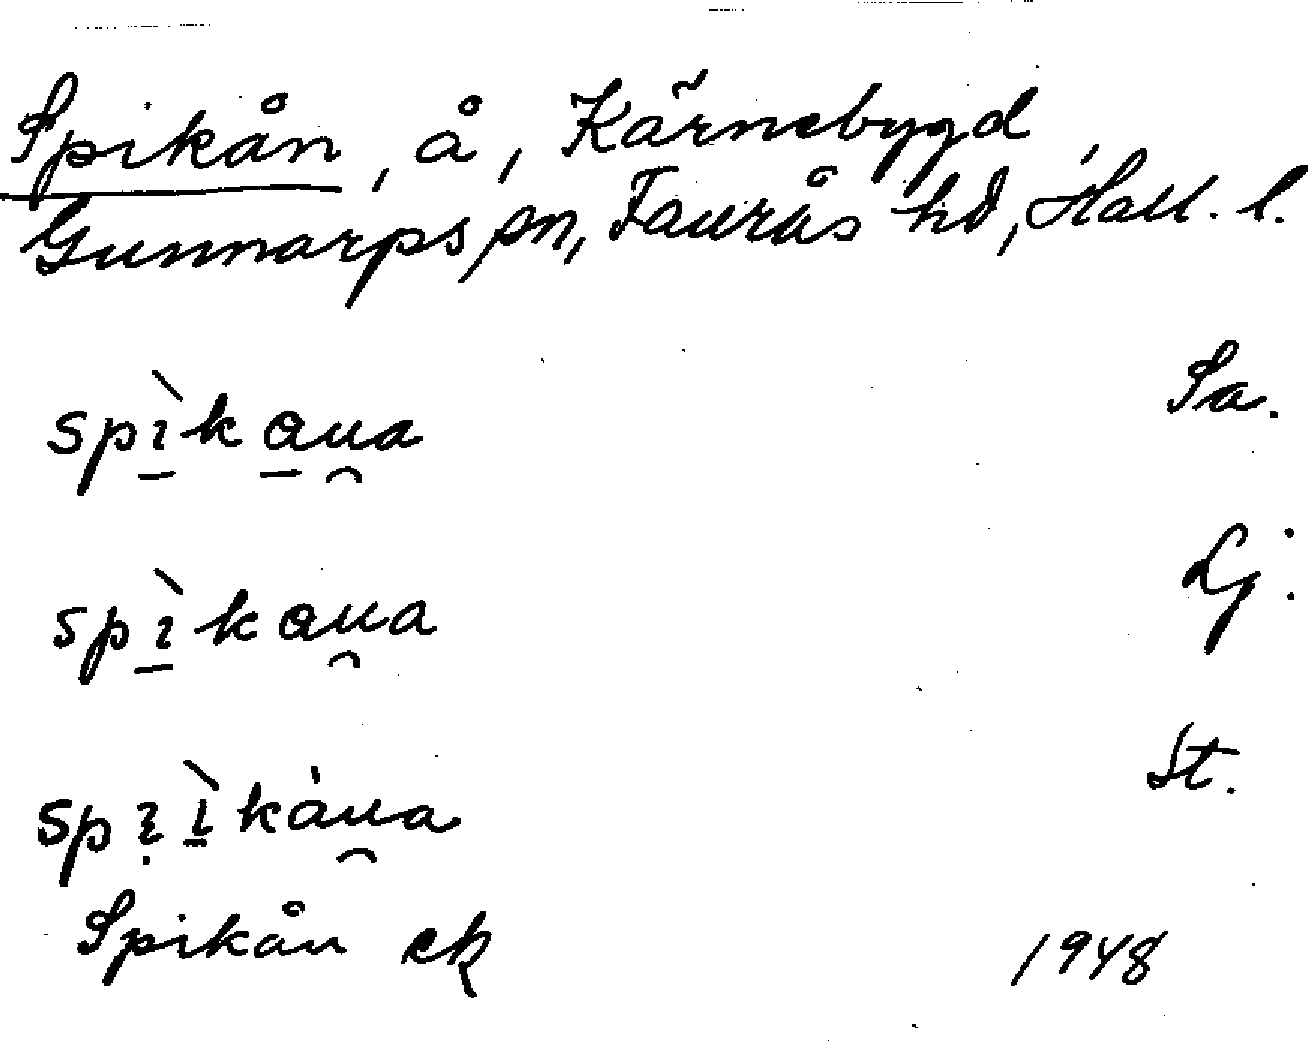 Spikån, å, Kärnebygd,
Gunnarps sn, Faurås hd, Hall. l.
spìkaua Sa.
spìkaua Lj.
spiìkàua St.
Spikån ek 1948